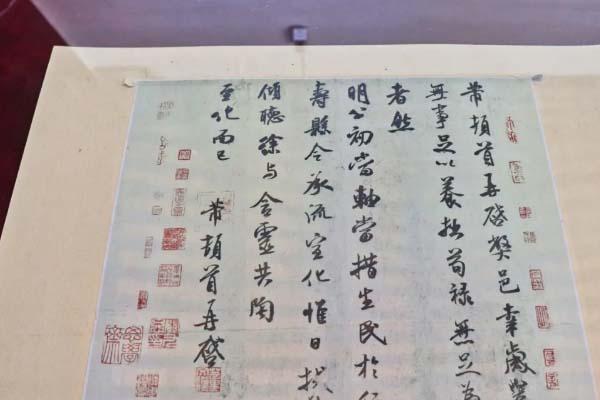 芾頓首再啓弊邑幸歲豐
無事足以養拙苟祿無足為
者然
明公初當軸當措生民於仁
壽縣令承流宣化惟日拭
傾聽徐与含靈共陶
至化而已
芾頓首再啓